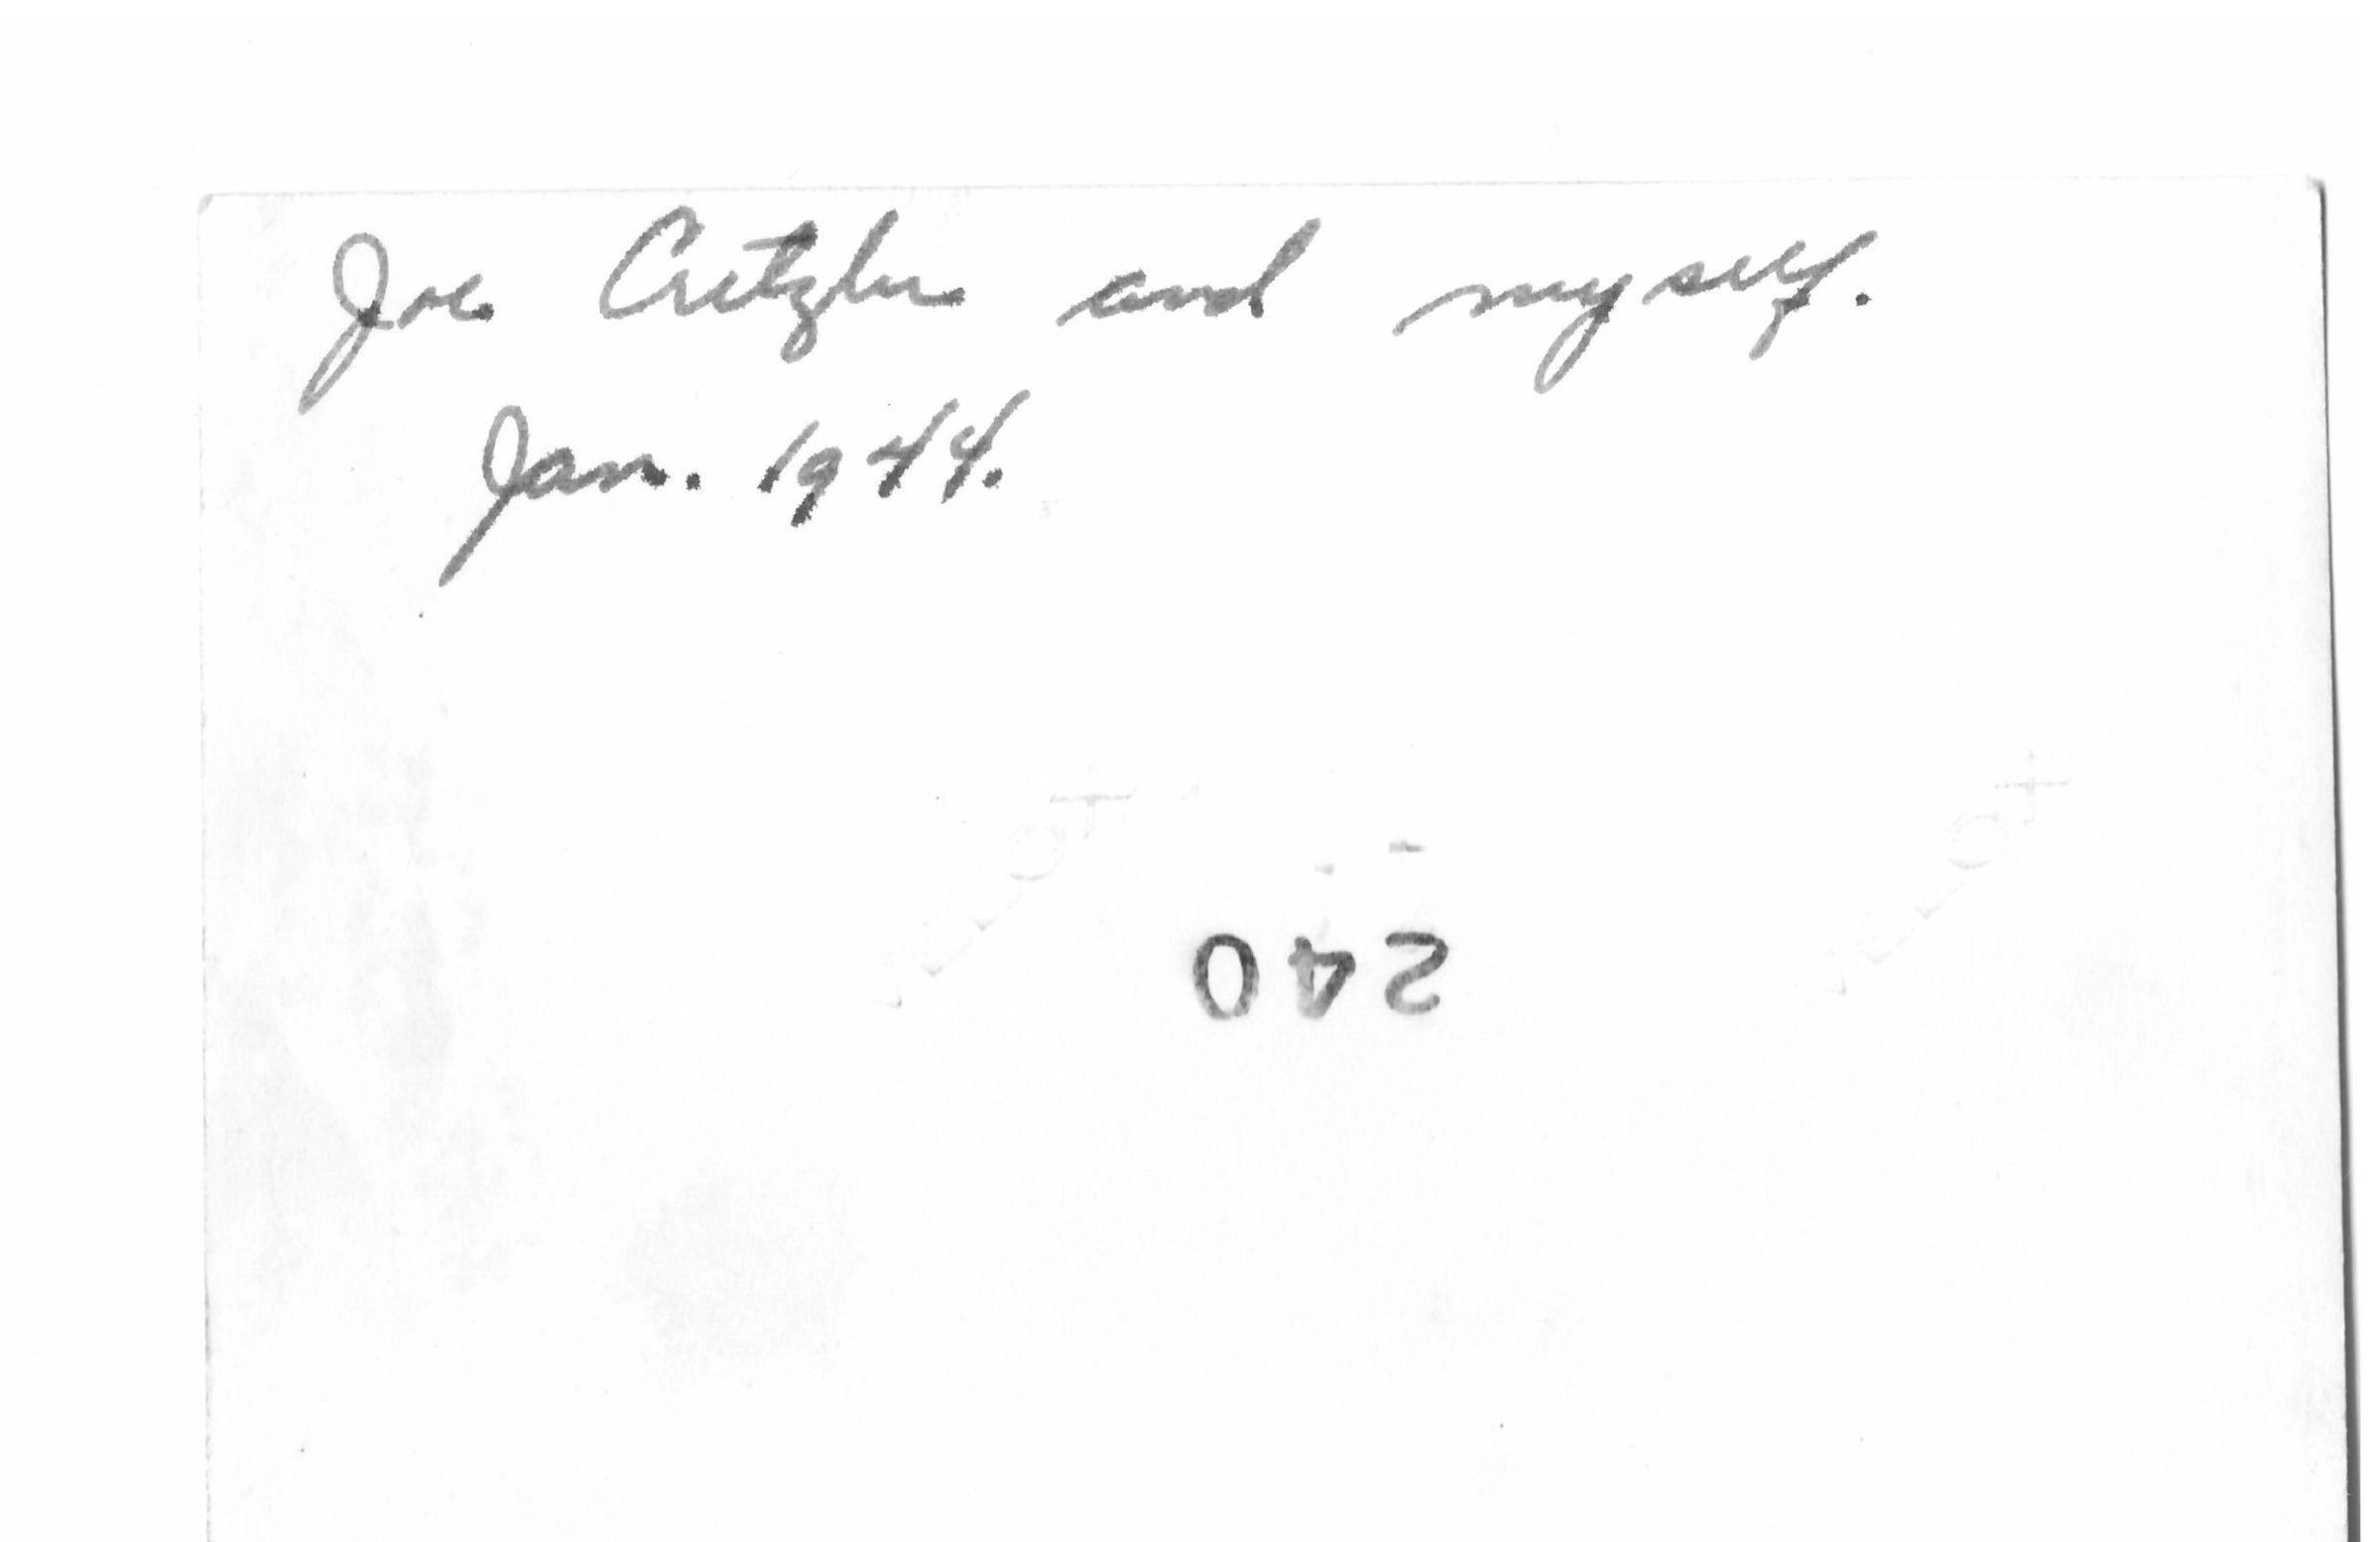 Joe Critzler and myself.
Jan. 1944.
240